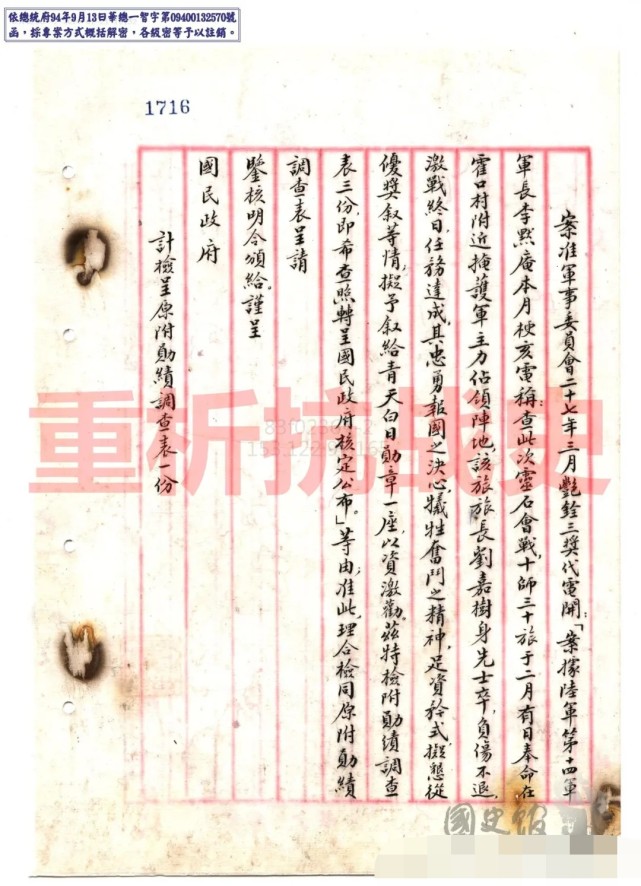 依總統府94年9月13日華總一智字第09400132570號
函，採專案方式概括解密，各級密等予以註銷。
1716
案准軍事委員會二十七年三月艷銓三獎代電開：「案據陸軍第十四軍
軍長李默庵本月梗亥電稱：查此次靈石會戰，十師三十旅于二月有日奉命在
霍口村附近掩護軍主力佔領陣地，該旅旅長劉嘉樹身先士卒，負傷不退，
激戰終日，任務達成，其忠勇報國之決心，犧牲奮鬥之精神，足資矜式，擬懇從
優獎敘等情，擬予敘給青天白日勛章一座，以資激勸。茲特檢附勛績調查
表三份，即希查照轉呈國民政府核定公布。」等由，准此，理合檢同原附勛績
調查表呈請
鑒核明令頒給。謹呈
國民政府
計檢呈原附勛績調查表一份
重析抗战史
國史館